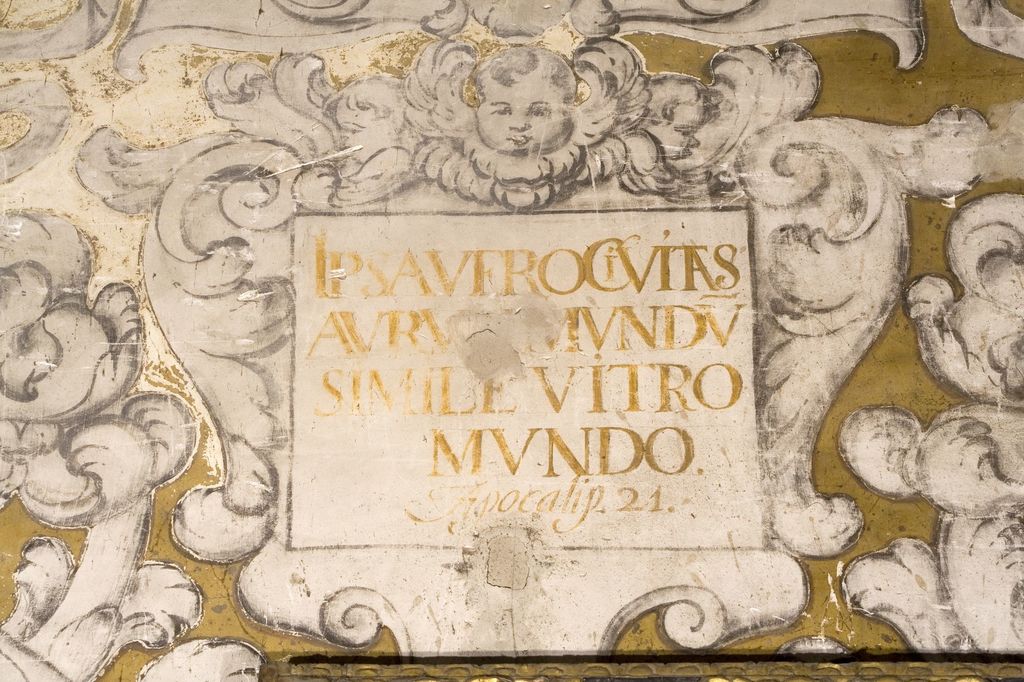 IPSA VERO CIVITAS
MVNDṼ
SIMILE VITRO
MVNDO.
Apocalip. 21.